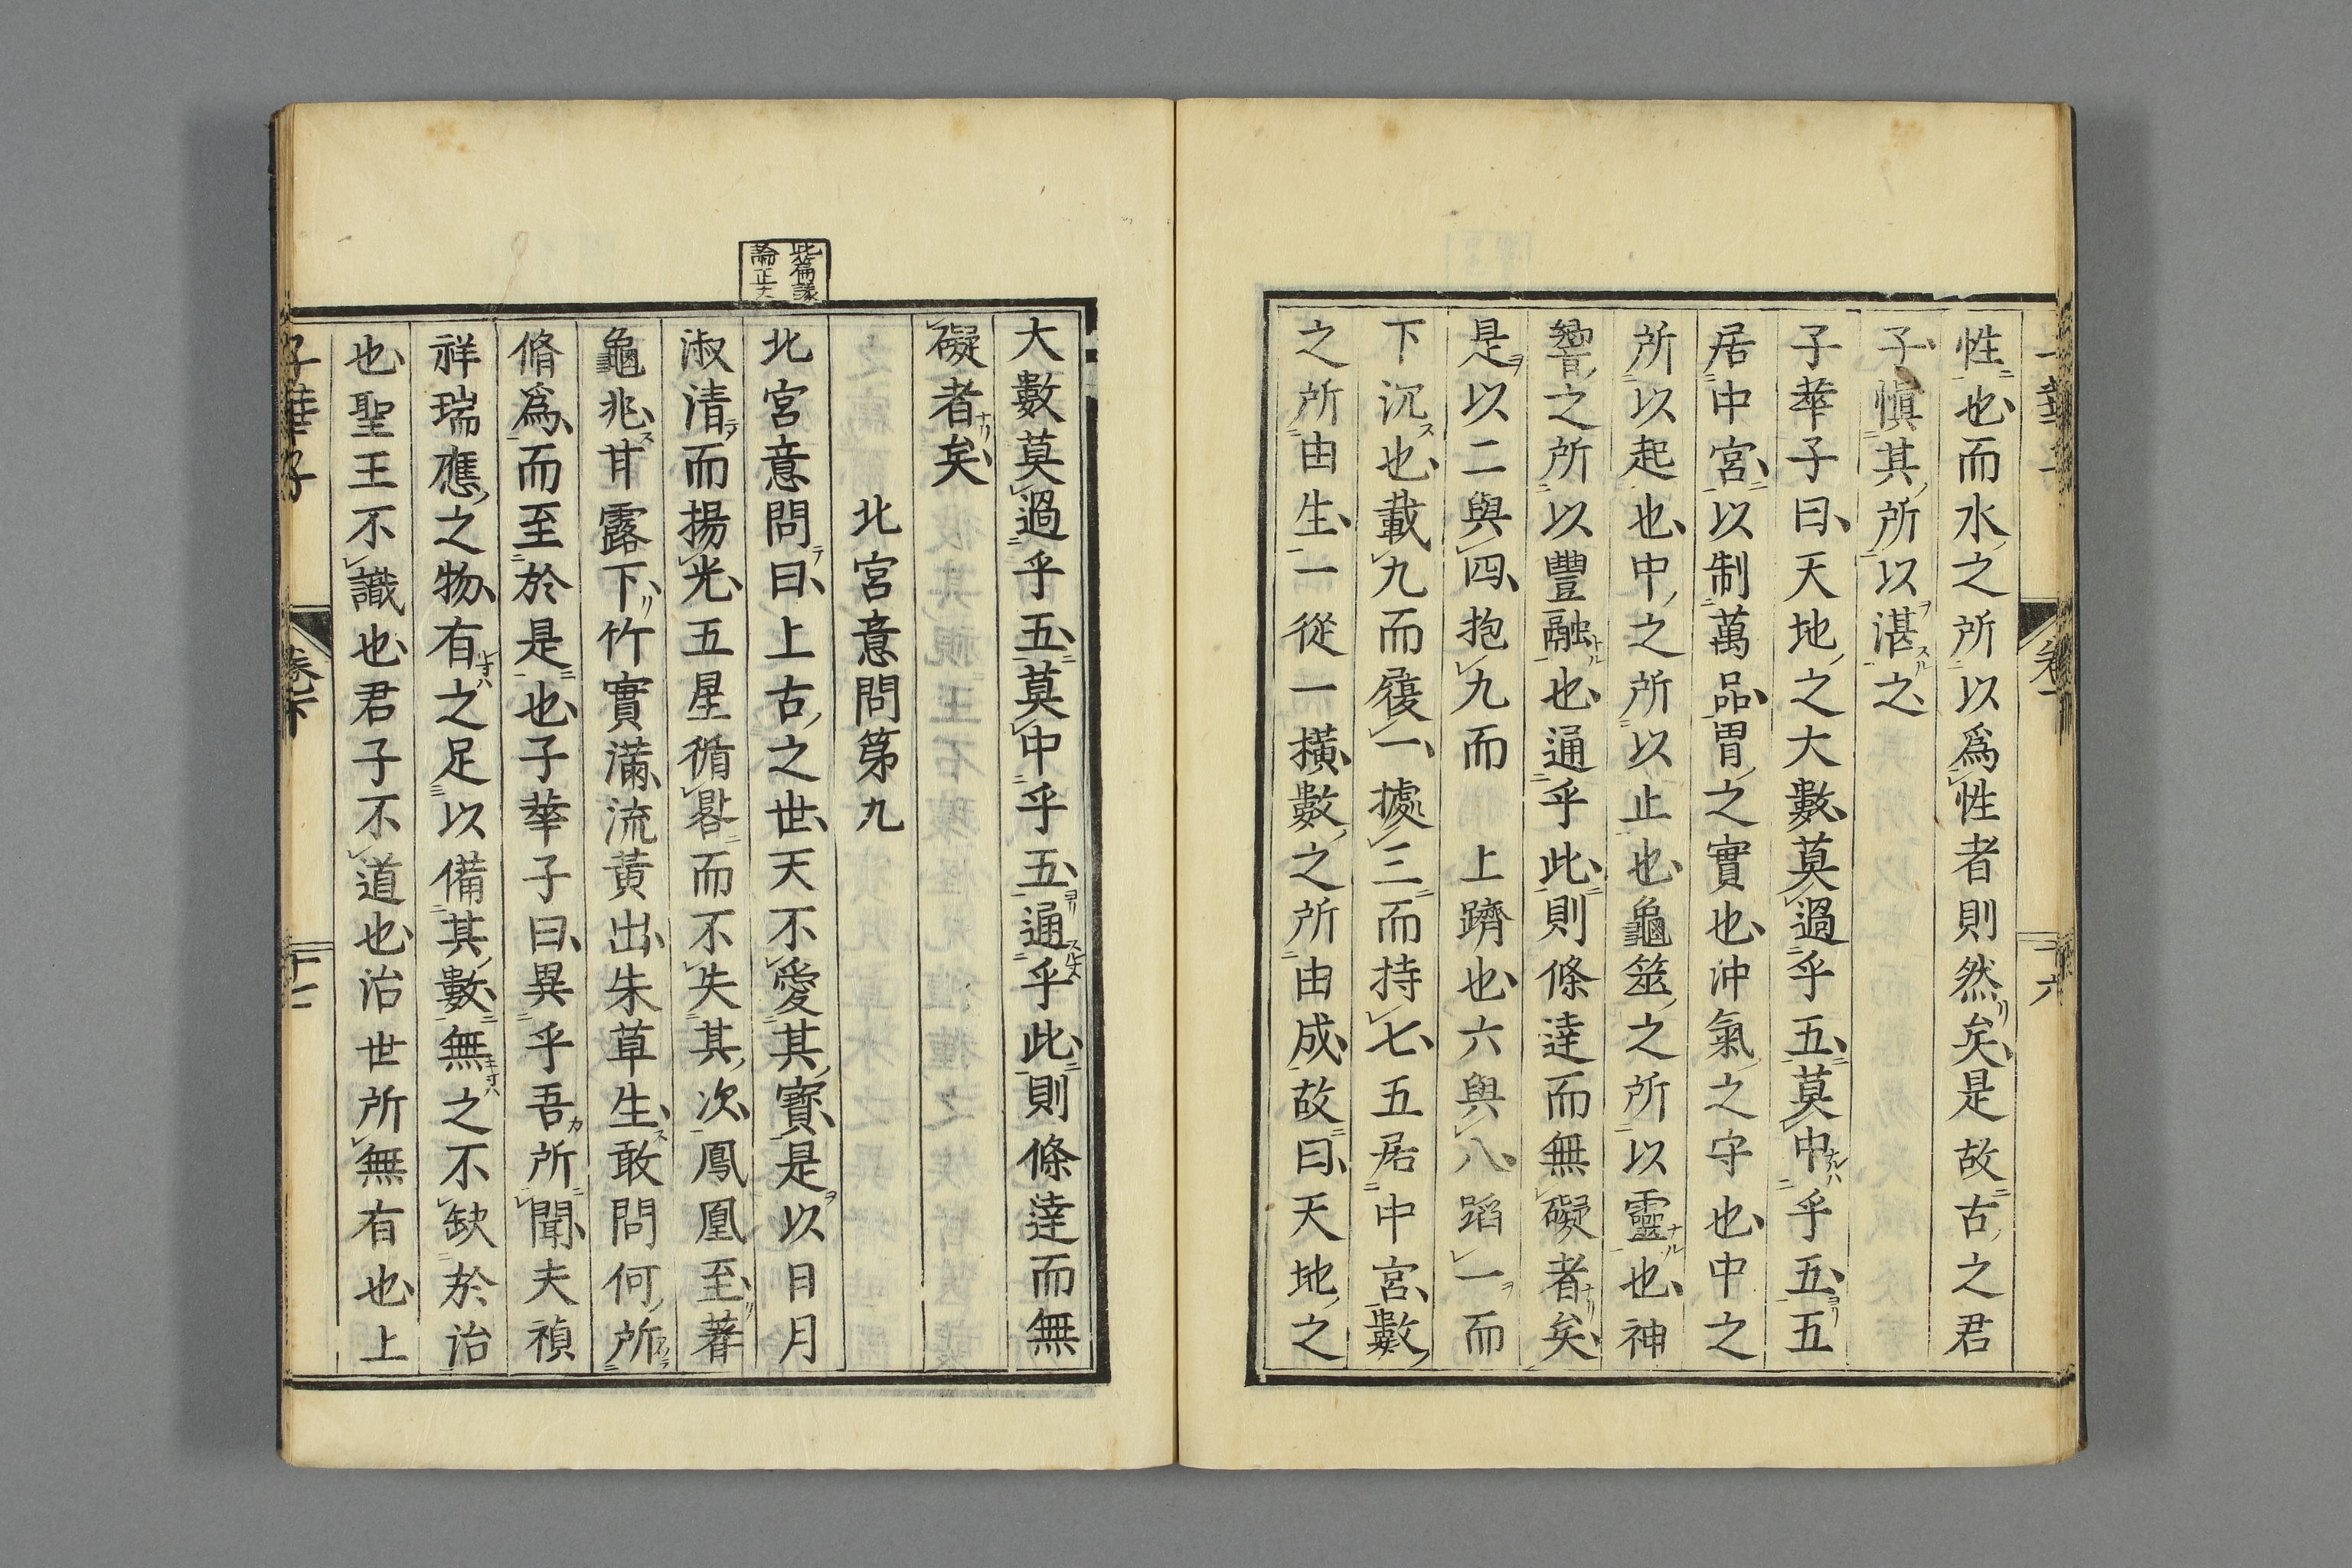 性也而水之所以爲性者則然矣是故古之君
子愼其所以湛之
子華子曰天地之大數莫過乎五莫中乎五五
居中宮以制萬品胃之實也沖氣之守也中之
所以起也中之所以止也龜筮之所以靈也神
響之所以豐融也通乎此則條達而無礙者矣
是以二與四抱九而上躋也六與八蹈一而
下沉也載九而履一據三而持七五居中宮數
之所由生一從一橫數之所由成故曰天地之
大數莫過乎五莫中乎五通乎此則條達而無
礙者矣
北宮意問第九
此篇議
論正大
北宮意問曰上古之世天不愛其寶是以日月
淑清而揚光五星循晷而不失其次鳳凰至蓍
龜兆甘露下竹實滿流黃出朱草生敢問何所
脩爲而至於是也子華子曰異乎吾所聞夫禎
祥瑞應之物有之足以備其數無之不缺於治
也聖王不識也君子不道也治世所無有也上
子華子
卷下